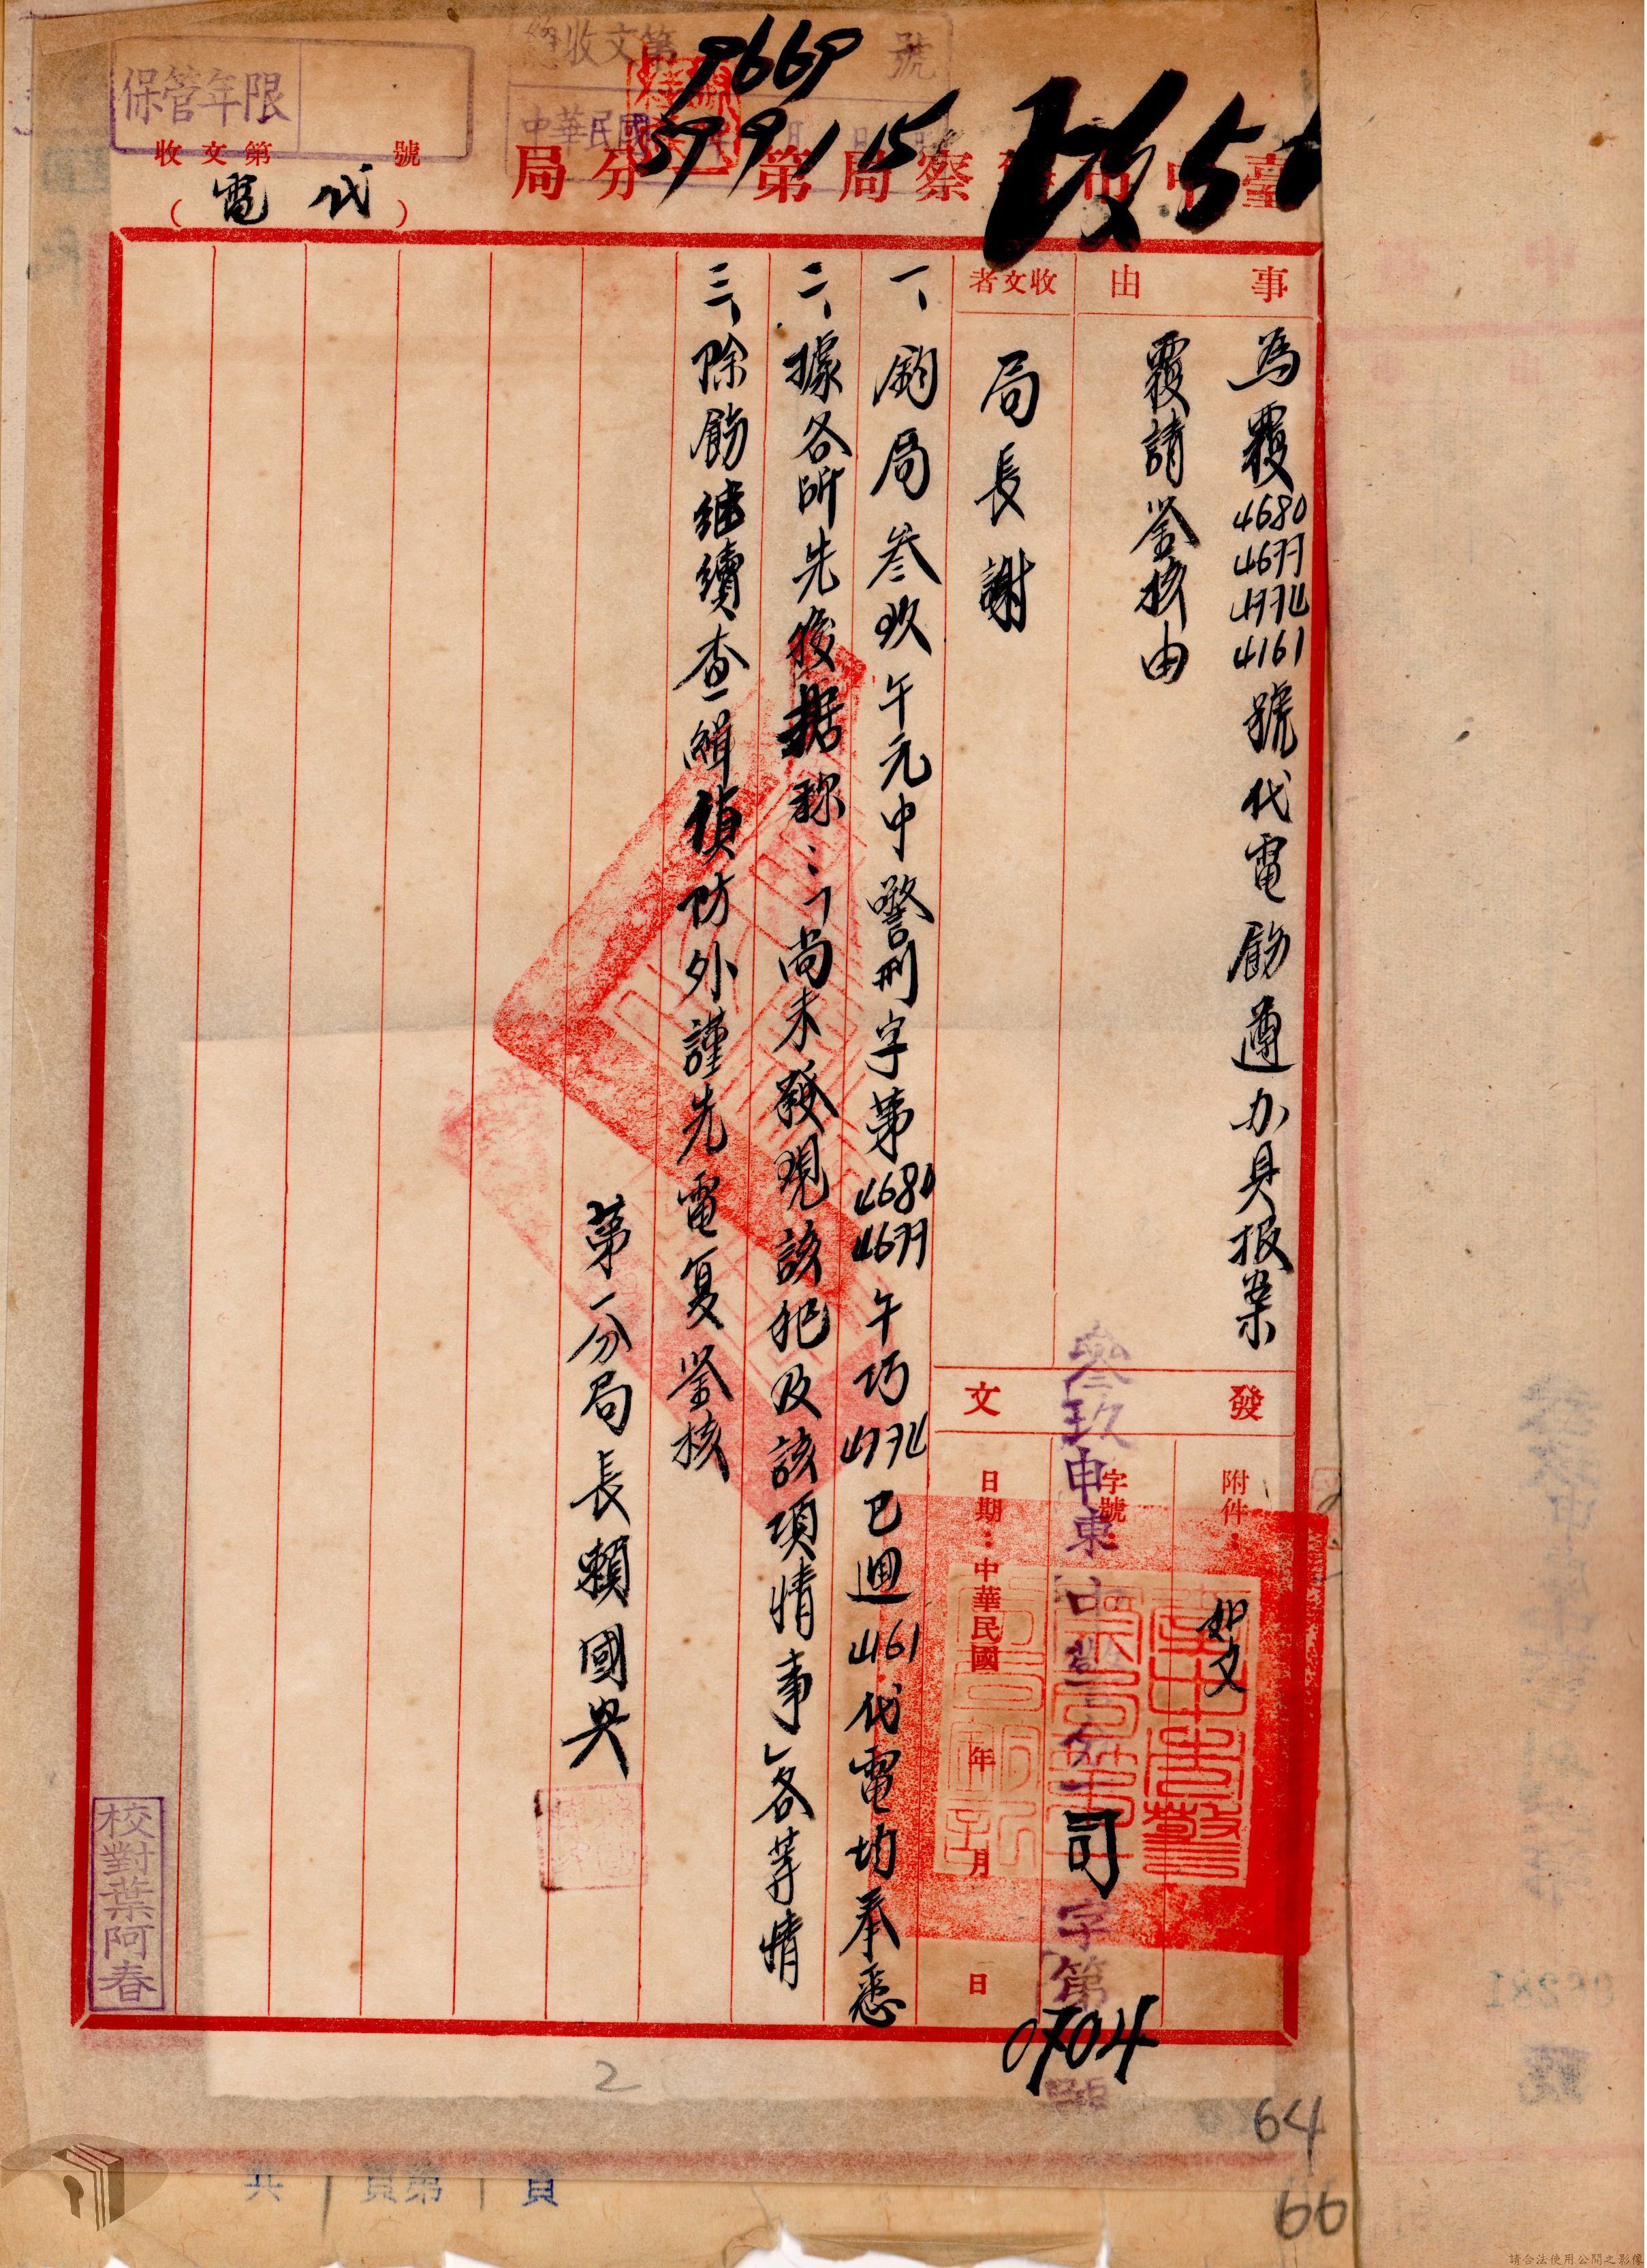 保管年限
總收文第9669號
中華民國
收文第 號
(代電)
臺中市警察局第一分局
事由
為覆4680 4677 4774 4161號代電飭遵办具报案
覆請鉴核由
收文者
局長謝
發文
附件：
如文
字號：
叁玖申東中警分一司字第0704號
日期：中華民國 年 月 日
一、鈞局叁玖午元中警刑字第4680 4677午巧4774巳迴4161代電均奉悉
二、據各所先後据称：「尚未發現該犯及該項情事」各等情
三、除飭继續查緝偵防外謹先電复鉴核
第一分局長賴國興
校對葉阿春
2
64
66
共 頁第 頁
請合法使用公開之影像